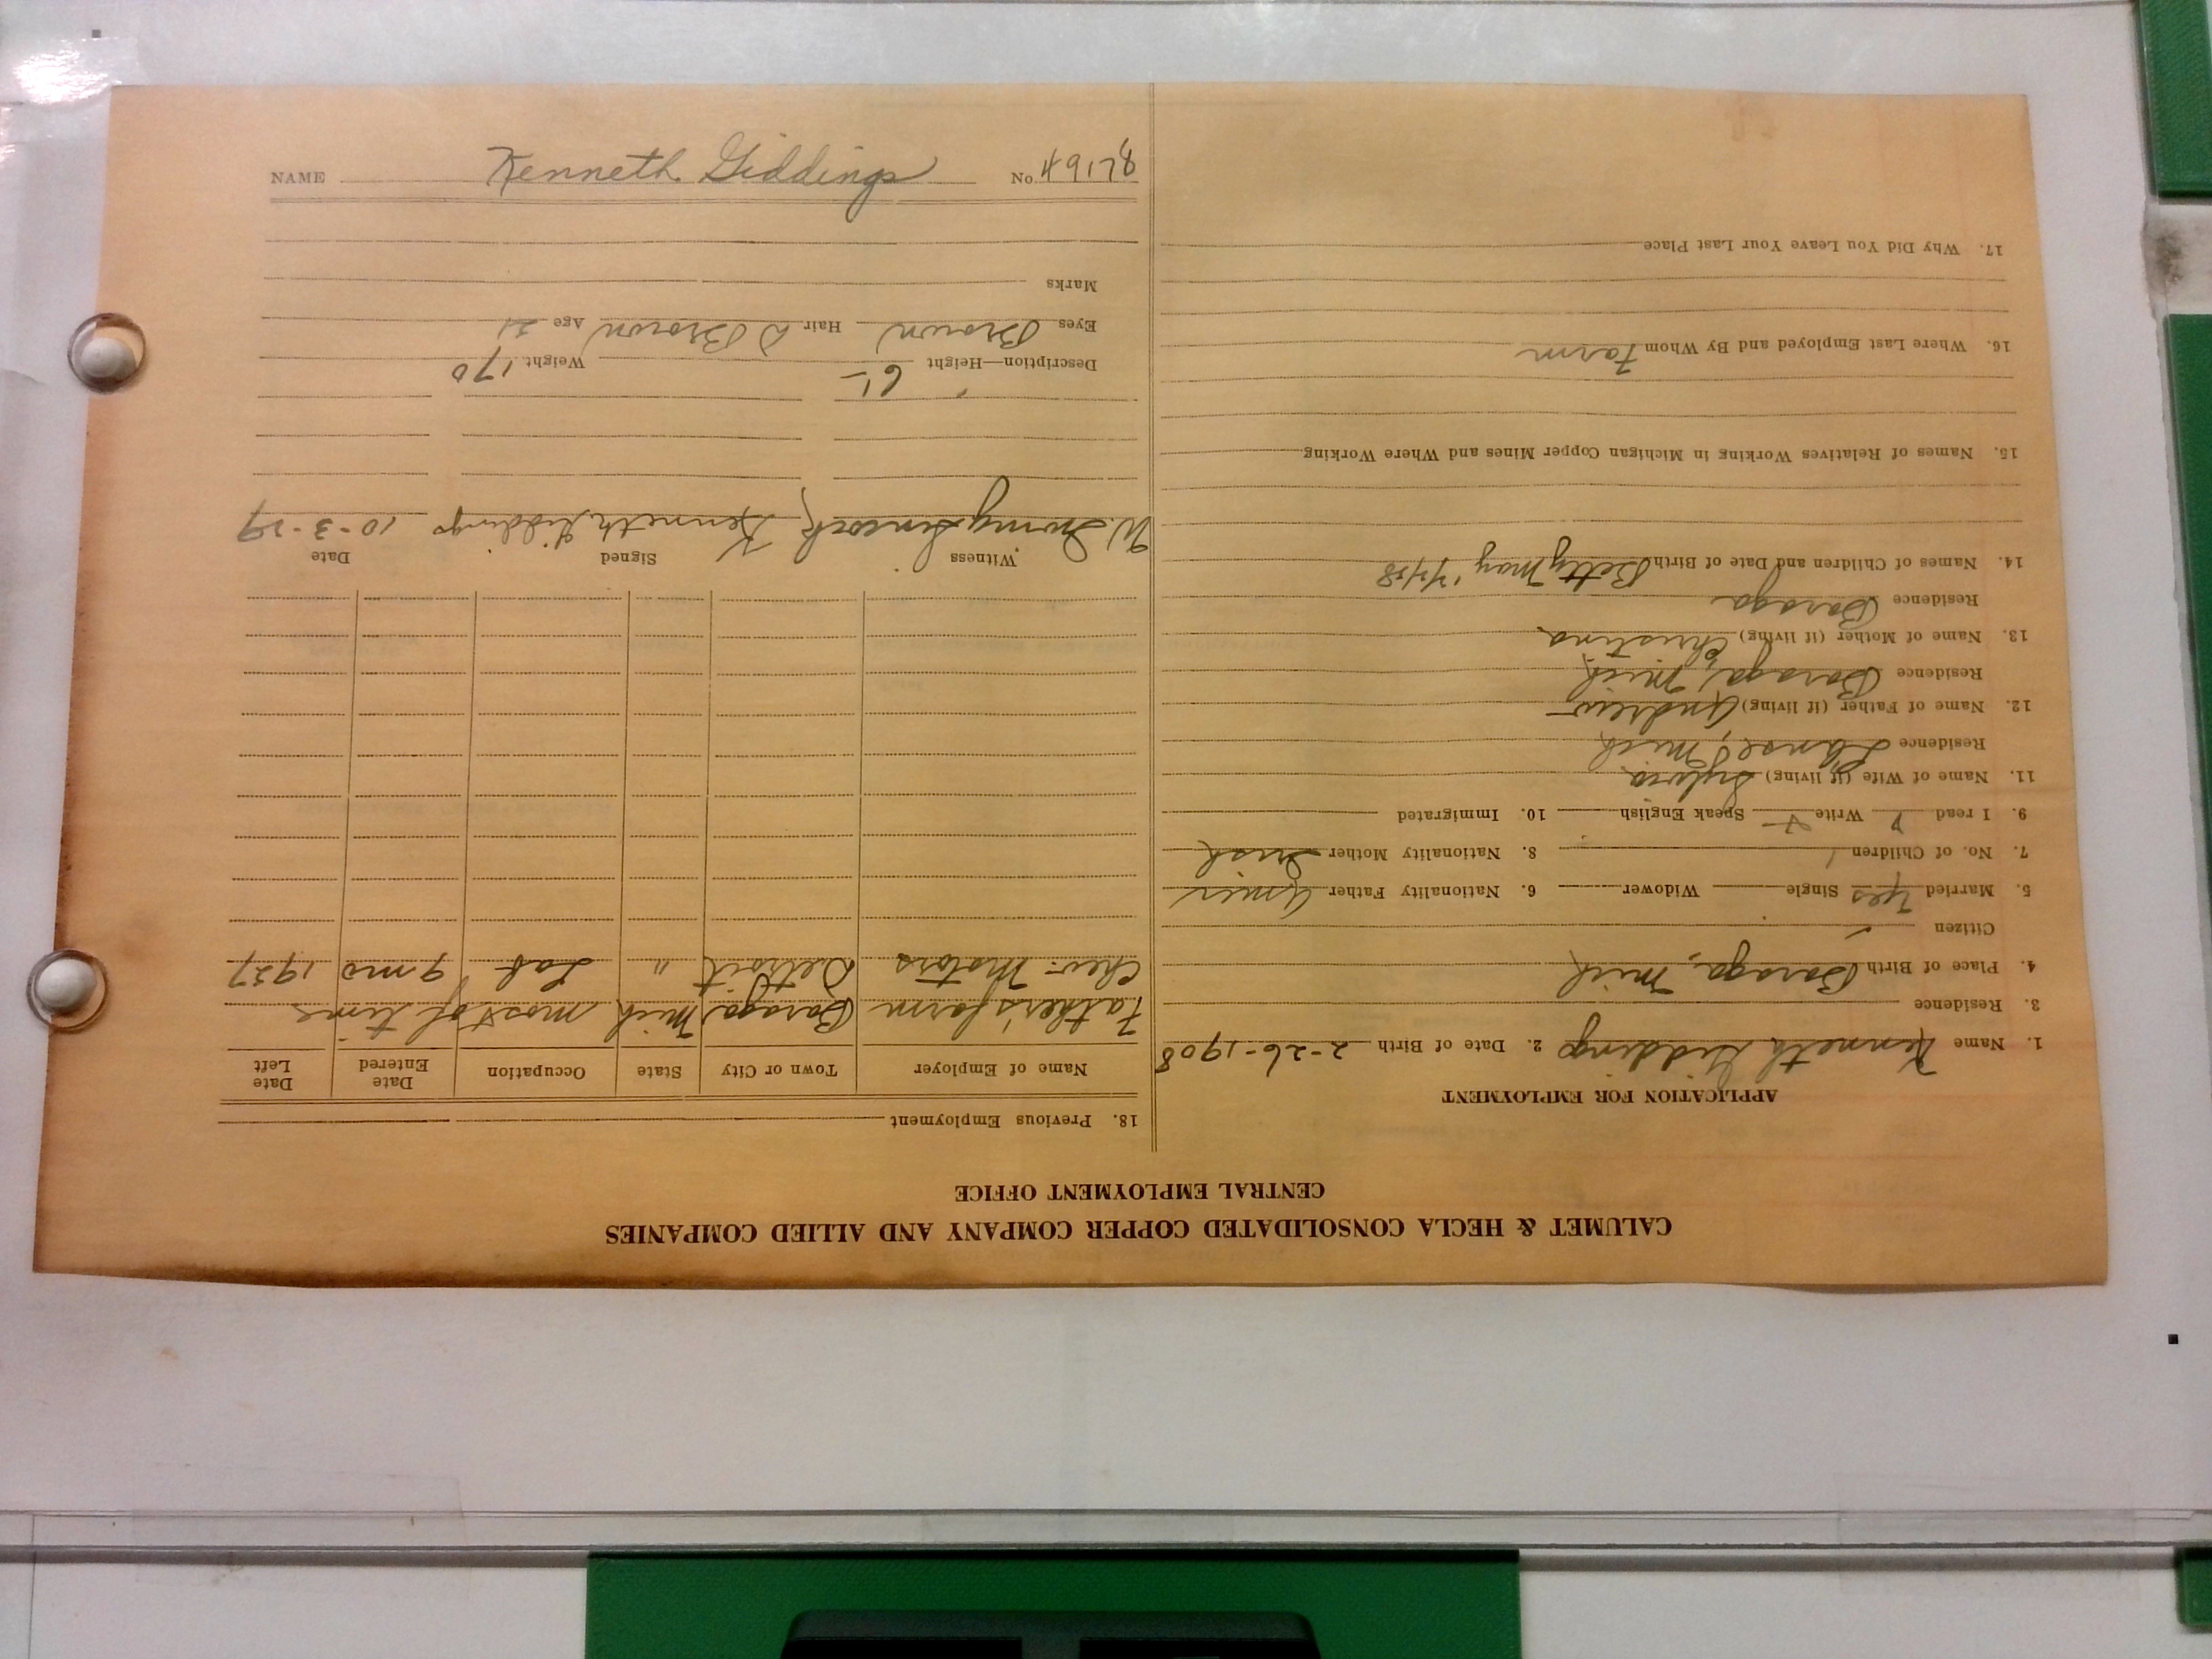 NAME Kenneth Giddings No. 49178
CALUMET & HECLA CONSOLIDATED COPPER COMPANY AND ALLIED COMPANIES
CENTRAL EMPLOYMENT OFFICE
APPLICATION FOR EMPLOYMENT
1. Name Kenneth Giddings 2. Date of Birth 2-26-1908
3. Residence
4. Place of Birth Baraga, Mich
Citizen
5. Married Yes Single Widower 6. Nationality Father Amer
7. No. of Children 1 8. Nationality Mother Irish
9. I read Write Speak English 10. Immigrated
11. Name of Wife (if living) Sylvia
Residence L'anse, Mich
12. Name of Father (if living) Andrew
Residence Baraga, Mich
13. Name of Mother (if living) Christina
Residence Baraga
14. Names of Children and Date of Birth Betty May
15. Names of Relatives Working in Michigan Copper Mines and Where Working
16. Where Last Employed and By Whom Farm
17. Why Did You Leave Your Last Place
18. Previous Employment
Name of Employer Town or City State Occupation Date Entered Date Left
Father's farm Baraga Mich most of time
Chev. Motors Detroit " Lab 9 mo 1927
Witness Signed Date
Kenneth Giddings 10-3-29
Description—Height 6'- Weight 170
Eyes Brown Hair D Brown Age 21
Marks